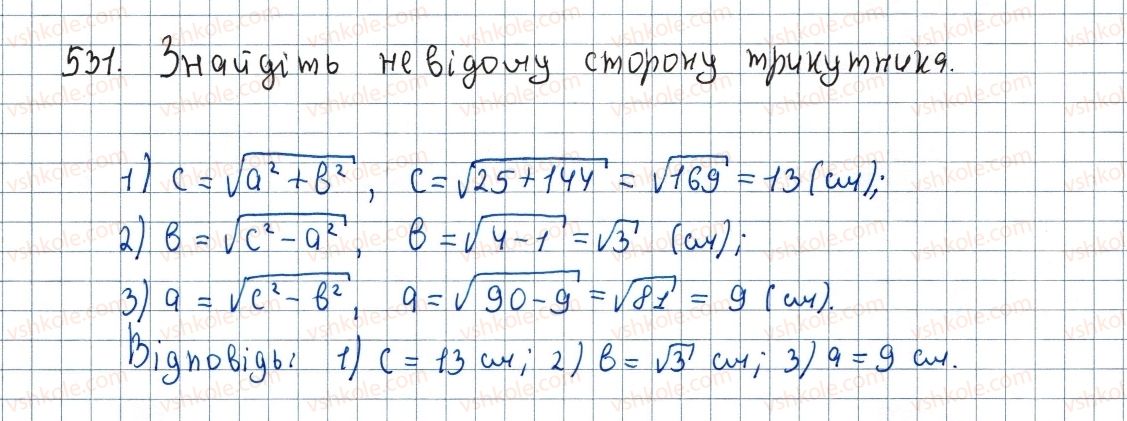 531. Знайдіть невідому сторону трикутника.
1) c = √(a² + b²), c = √(25 + 144) = √169 = 13 (см);
2) b = √(c² - a²), b = √(4 - 1) = √3 (см);
3) a = √(c² - b²), a = √(90 - 9) = √81 = 9 (см).
Відповідь: 1) c = 13 см; 2) b = √3 см; 3) a = 9 см.